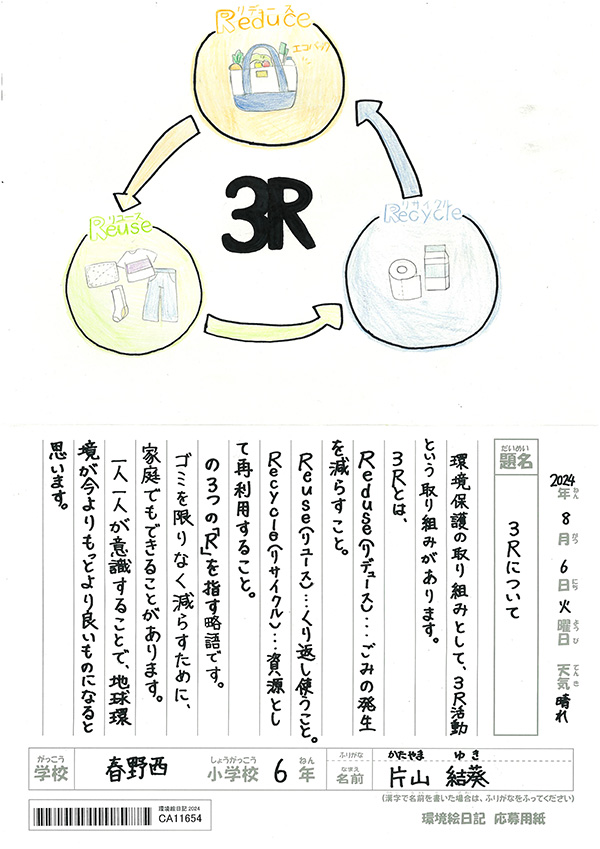 リデュース
Reduce
エコバッグ
3R
リユース
Reuse
リサイクル
Recycle
2024年 8月 6日 火曜日 天気 晴れ
ねん がつ にち ようび てんき
だいめい
題名
3Rについて
環境保護の取り組みとして、3R活動
という取り組みがあります。
3Rとは、
Reduse(リデュース)…ごみの発生
を減らすこと。
Reuse(リユース)…くり返し使うこと。
Recycle(リサイクル)…資源とし
て再利用すること。
の3つの「R」を指す略語です。
ゴミを限りなく減らすために、
家庭でもできることがあります。
一人一人が意識することで、地球環
境が今よりもっとより良いものになると
思います。
がっこう しょうがっこう ねん ふりがな かたやま ゆき
学校 春野西 小学校 6年 なまえ 名前 片山 結葵
(漢字で名前を書いた場合は、ふりがなをふってください)
環境絵日記 2024
CA11654
環境絵日記 応募用紙